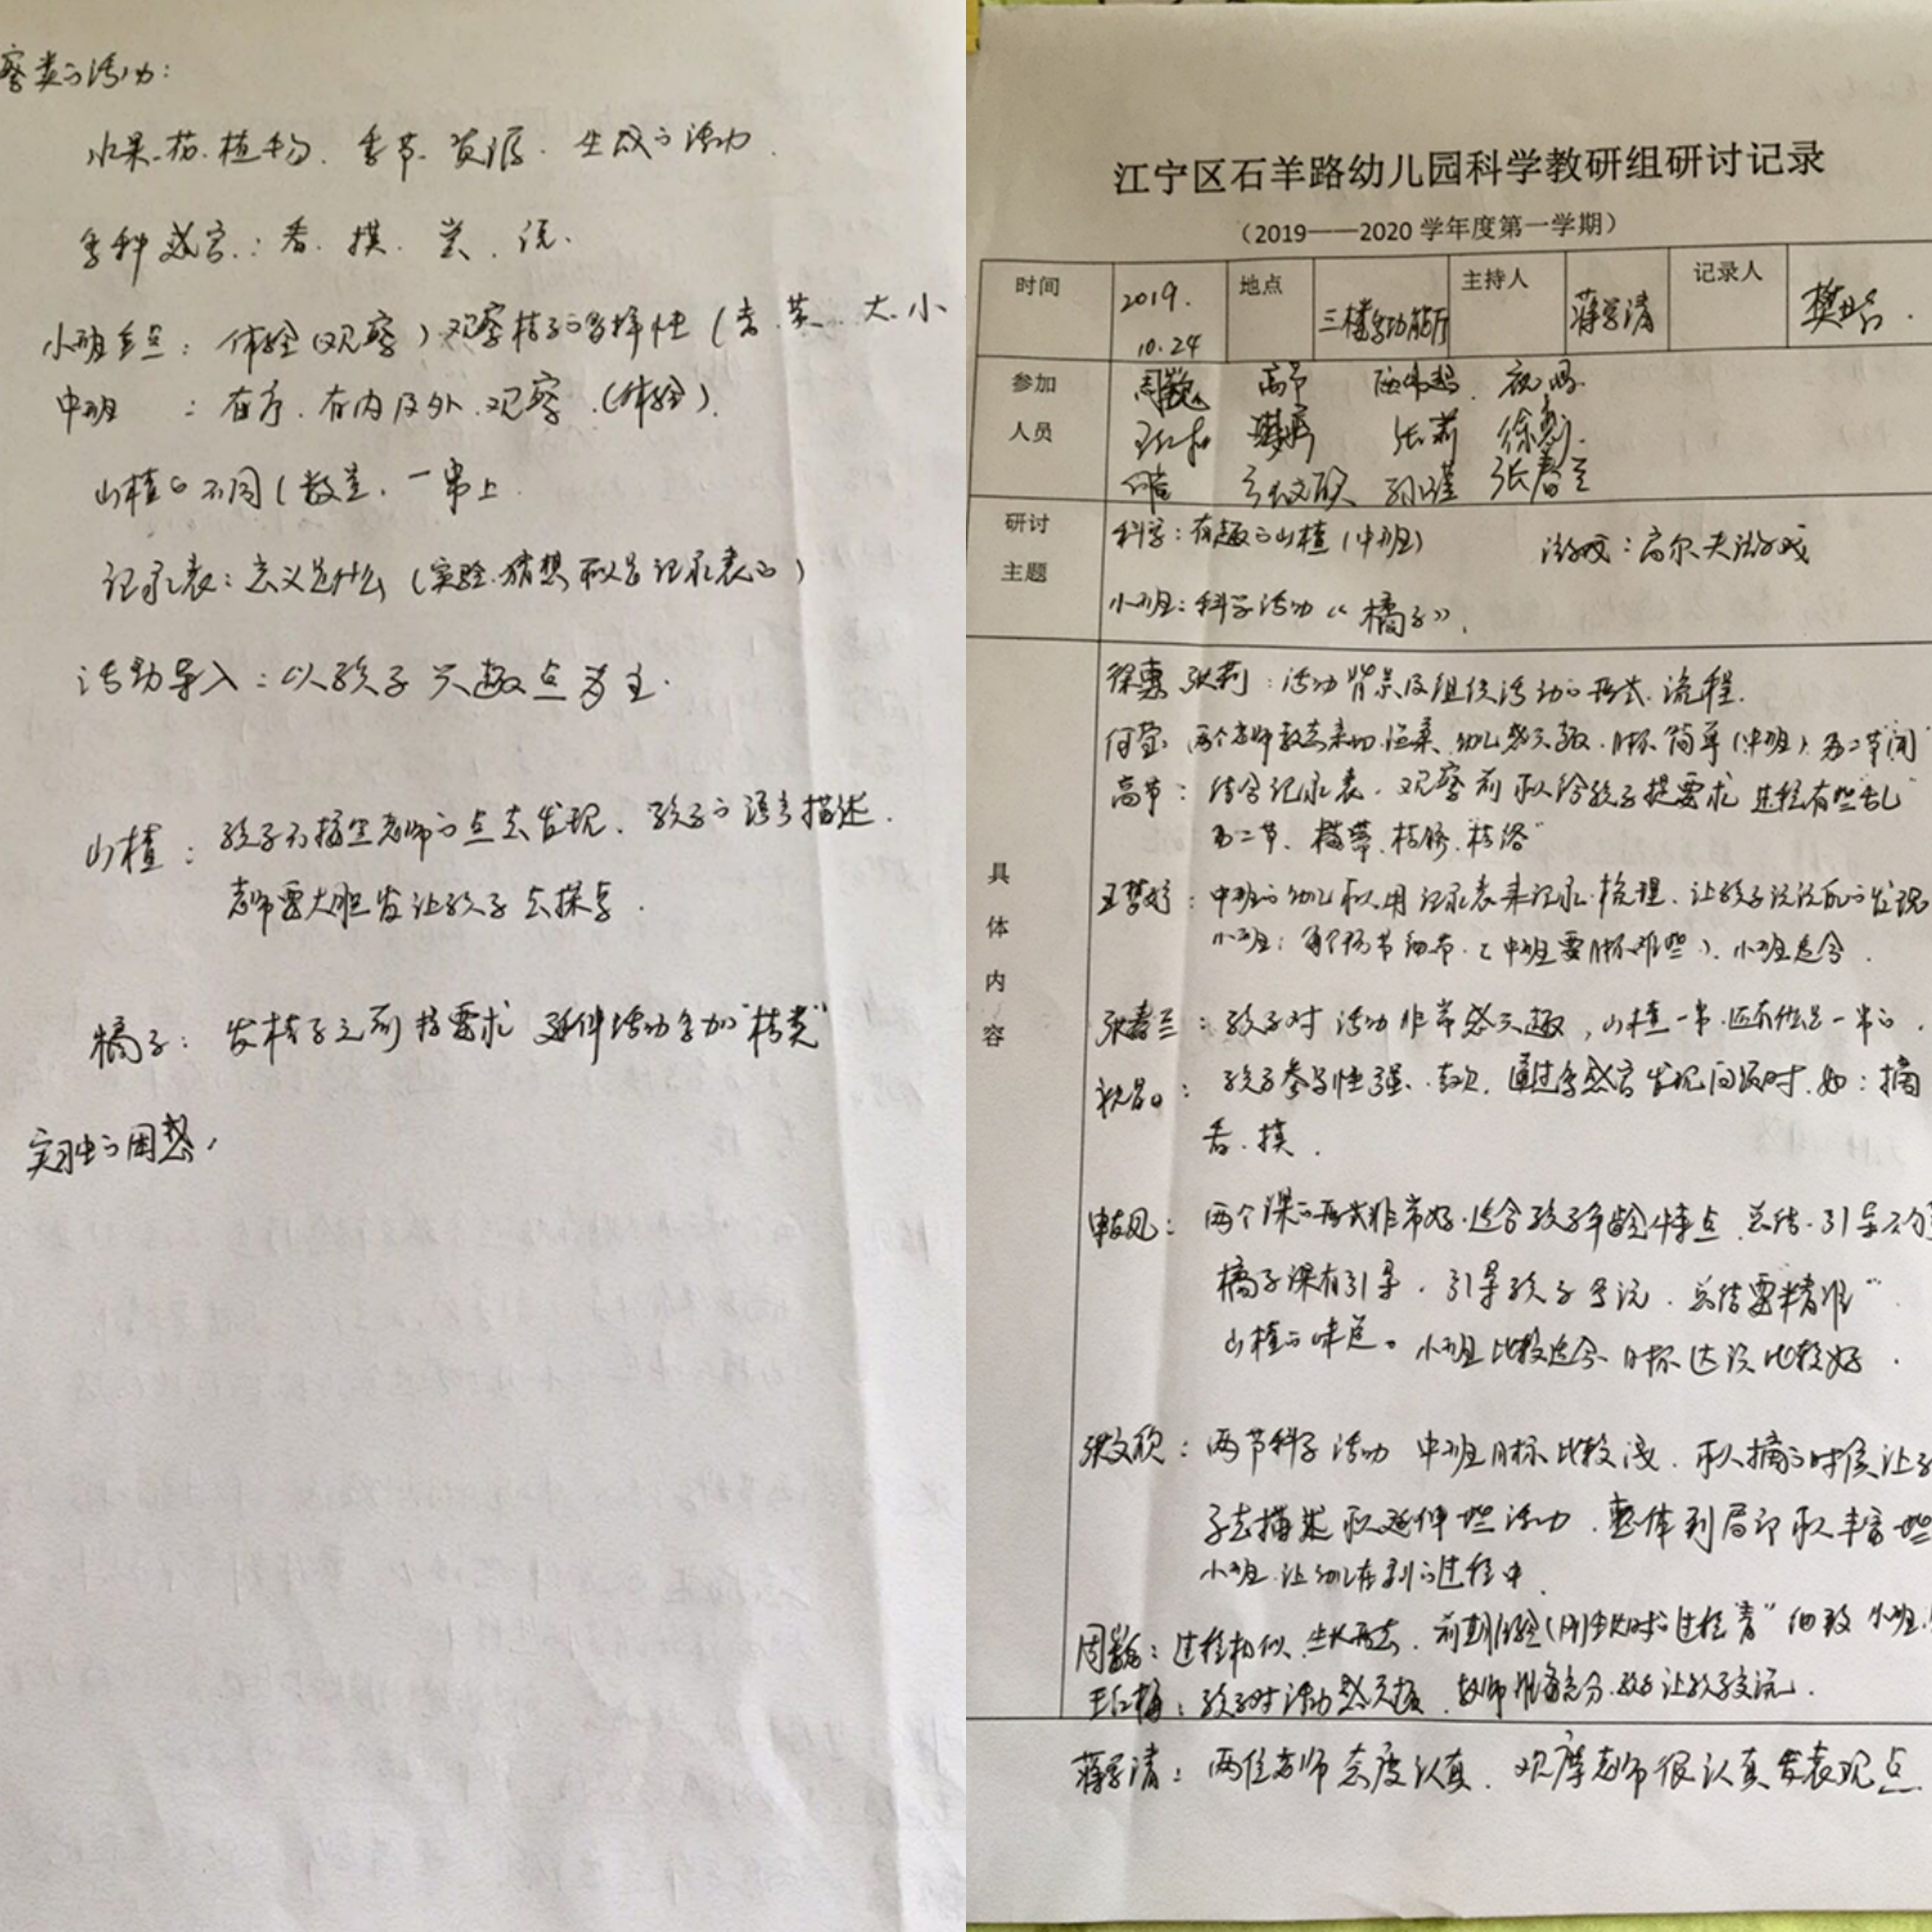 察类的活动：
水果、茄、植物、季节、资源、生成的活动
多种感官：看、摸、尝、说、
小班重点：体验（观察）观察桔子的多样性（青、黄、大、小
中班：有序、有内及外、观察、（体验）、
山楂的不同（数量、一串上
记录表：意义是什么（实验、猜想可以是记录表的）
活动导入：以孩子兴趣点为主、
山楂：孩子不描空老师的点去发现、孩子的语言描述、
老师要大胆发让孩子去探导、
橘子：发桔子之前提要求 延伸活动参加“桔类”
实习生的困惑，
江宁区石羊路幼儿园科学教研组研讨记录
（2019——2020 学年度第一学期）
时间 2019. 10.24 地点 三楼多功能厅 主持人 蒋学清 记录人
参加 高节
人员 王红梅 张莉 徐惠
何莹 张文欣 孙瑾 张春兰
研讨 科学：有趣的山楂（中班） 游戏：高尔夫游戏
主题
小班：科学活动《橘子》、
具体内容
徐惠 张莉：活动背景及组织活动的形式、流程、
何莹：两个老师教态亲切、温柔、幼儿感兴趣、目标简单（中班）、第二节“闻”
高节：结合记录表、观察前可以给孩子提要求 过程有些“乱”
第二节、橘蒂、桔络
中班的幼儿可以用记录表来记录、梳理、让孩子说说自己的发现
小班：每个环节细节、（中班要目标难些）、小班适合、
张春兰：孩子对活动非常感兴趣，山楂一串、还有什么是一串的、
孩子参与性强、喜欢、通过多感官发现问题时、如：摘
看、摸、
申友凤：两个课的形式非常好、适合孩子年龄特点、总结、引导不
橘子课有引导、引导孩子多说、总结要精准“
山楂的味道。小班比较适合、目标达设比较好、
张文欣：两节科学活动 中班目标比较浅、可以摘的时候让孩
子去描述可以延伸些活动、整体到局部可以丰富些
小班、让幼儿在剥的过程中、
过程相似、 前期经验 过程“青”细致 小班、
王红梅：孩子对活动感兴趣、教师准备充分、多让孩子交流、
蒋学清：两位老师态度认真、观摩老师很认真发表观点、